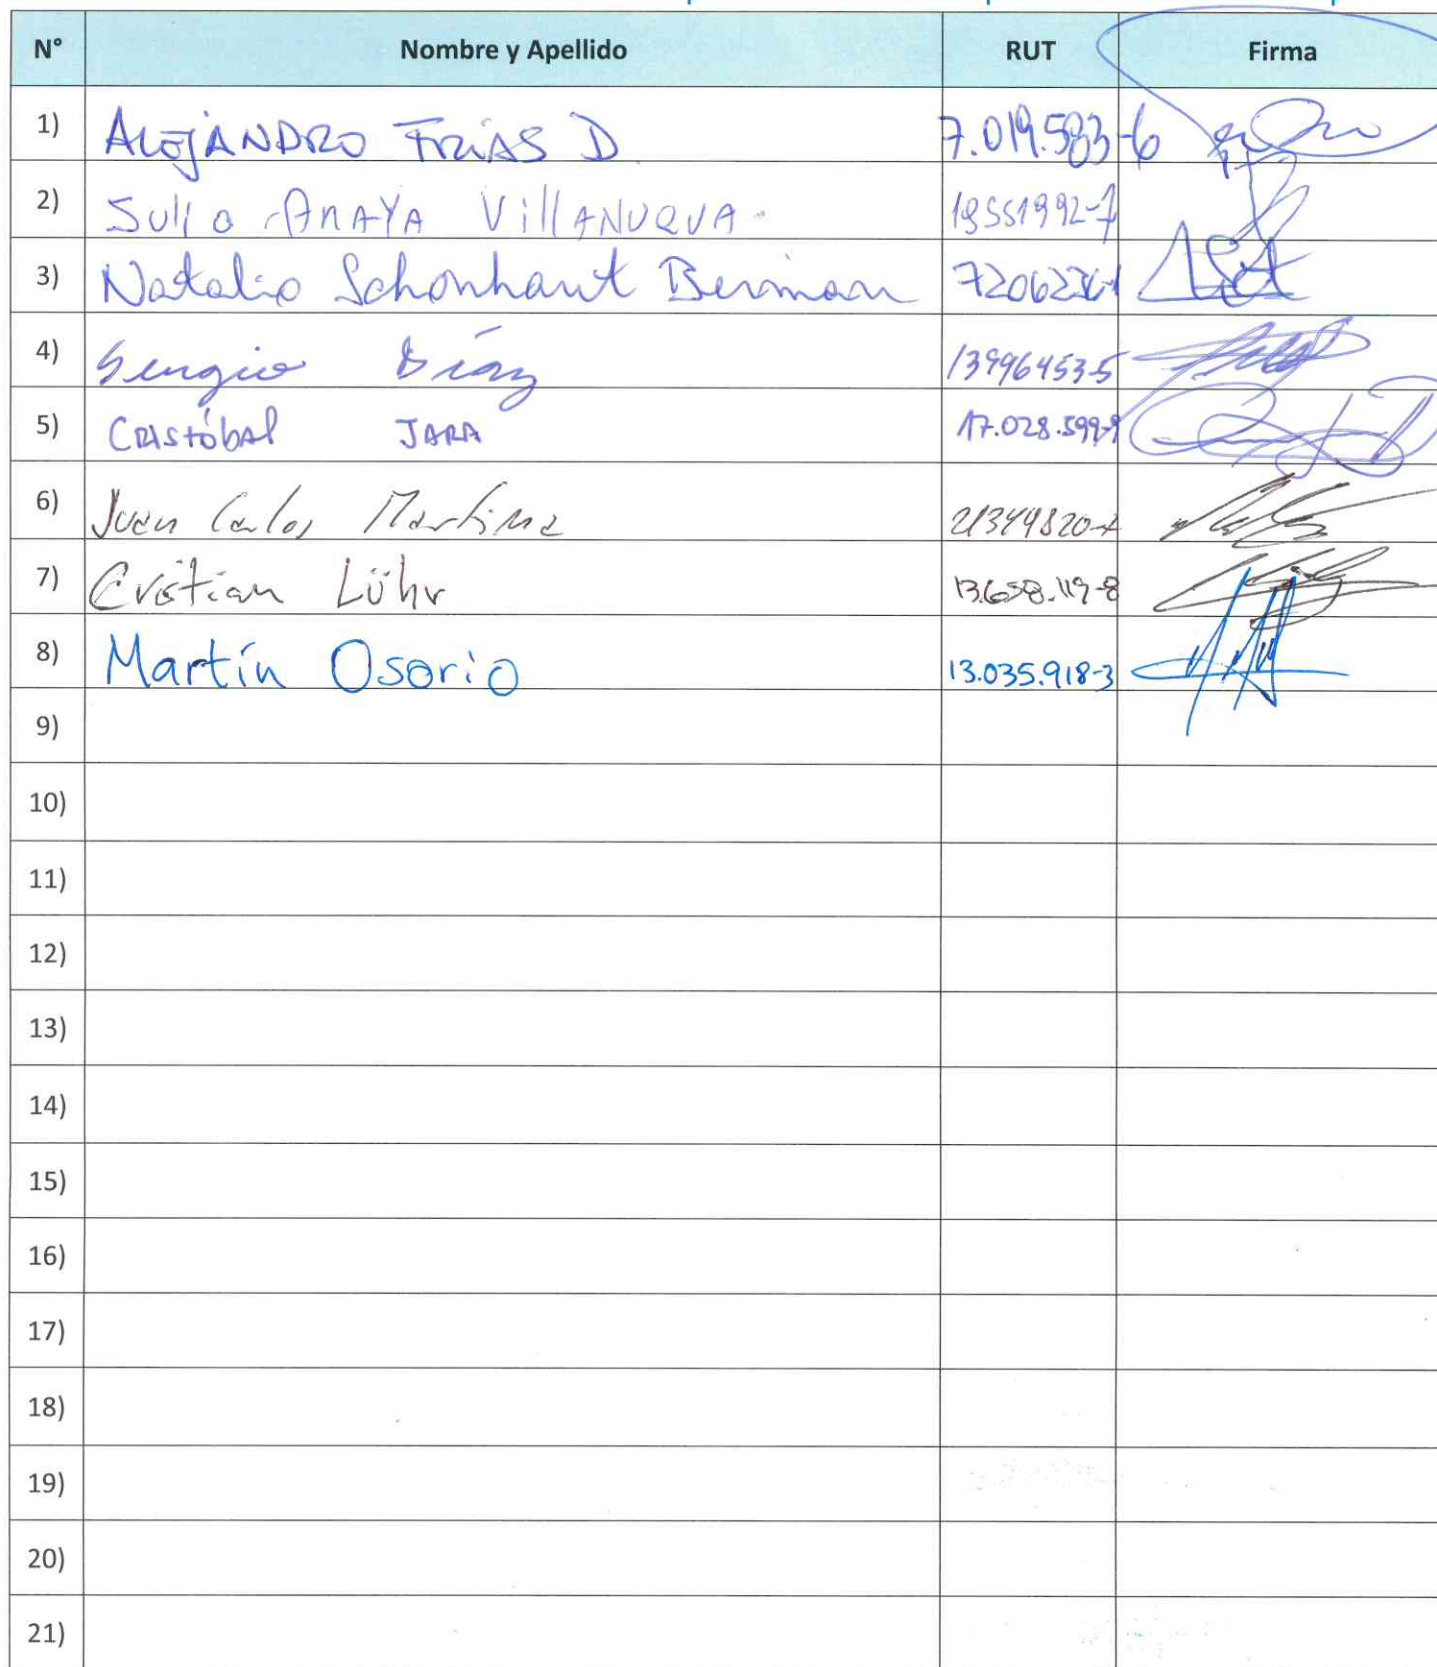 N° Nombre y Apellido RUT Firma
1) ALEJANDRO FRIAS D 7.019.583-6
2) Julio ANAYA VillANUEVA 19551992-7
3) Natalio Schonhaut Berman 7206236-1
4) Sergio Díaz 13996453-5
5) CRIStóbAl JARA 17.028.599-9
6) Juan Carlos Martinez 21344820-7
7) Cristian Löhr 13.658.119-8
8) Martín Osorio 13.035.918-3
9)
10)
11)
12)
13)
14)
15)
16)
17)
18)
19)
20)
21)